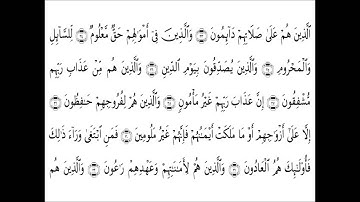 ٱلَّذِينَ هُمْ عَلَىٰ صَلَاتِهِمْ دَآئِمُونَ ۝ وَٱلَّذِينَ فِىٓ أَمْوَٰلِهِمْ حَقٌّ مَّعْلُومٌ ۝ لِّلسَّآئِلِ
وَٱلْمَحْرُومِ ۝ وَٱلَّذِينَ يُصَدِّقُونَ بِيَوْمِ ٱلدِّينِ ۝ وَٱلَّذِينَ هُم مِّنْ عَذَابِ رَبِّهِم
مُّشْفِقُونَ ۝ إِنَّ عَذَابَ رَبِّهِمْ غَيْرُ مَأْمُونٍ ۝ وَٱلَّذِينَ هُمْ لِفُرُوجِهِمْ حَٰفِظُونَ ۝
إِلَّا عَلَىٰٓ أَزْوَٰجِهِمْ أَوْ مَا مَلَكَتْ أَيْمَٰنُهُمْ فَإِنَّهُمْ غَيْرُ مَلُومِينَ ۝ فَمَنِ ٱبْتَغَىٰ وَرَآءَ ذَٰلِكَ
فَأُو۟لَٰٓئِكَ هُمُ ٱلْعَادُونَ ۝ وَٱلَّذِينَ هُمْ لِأَمَٰنَٰتِهِمْ وَعَهْدِهِمْ رَٰعُونَ ۝ وَٱلَّذِينَ هُم